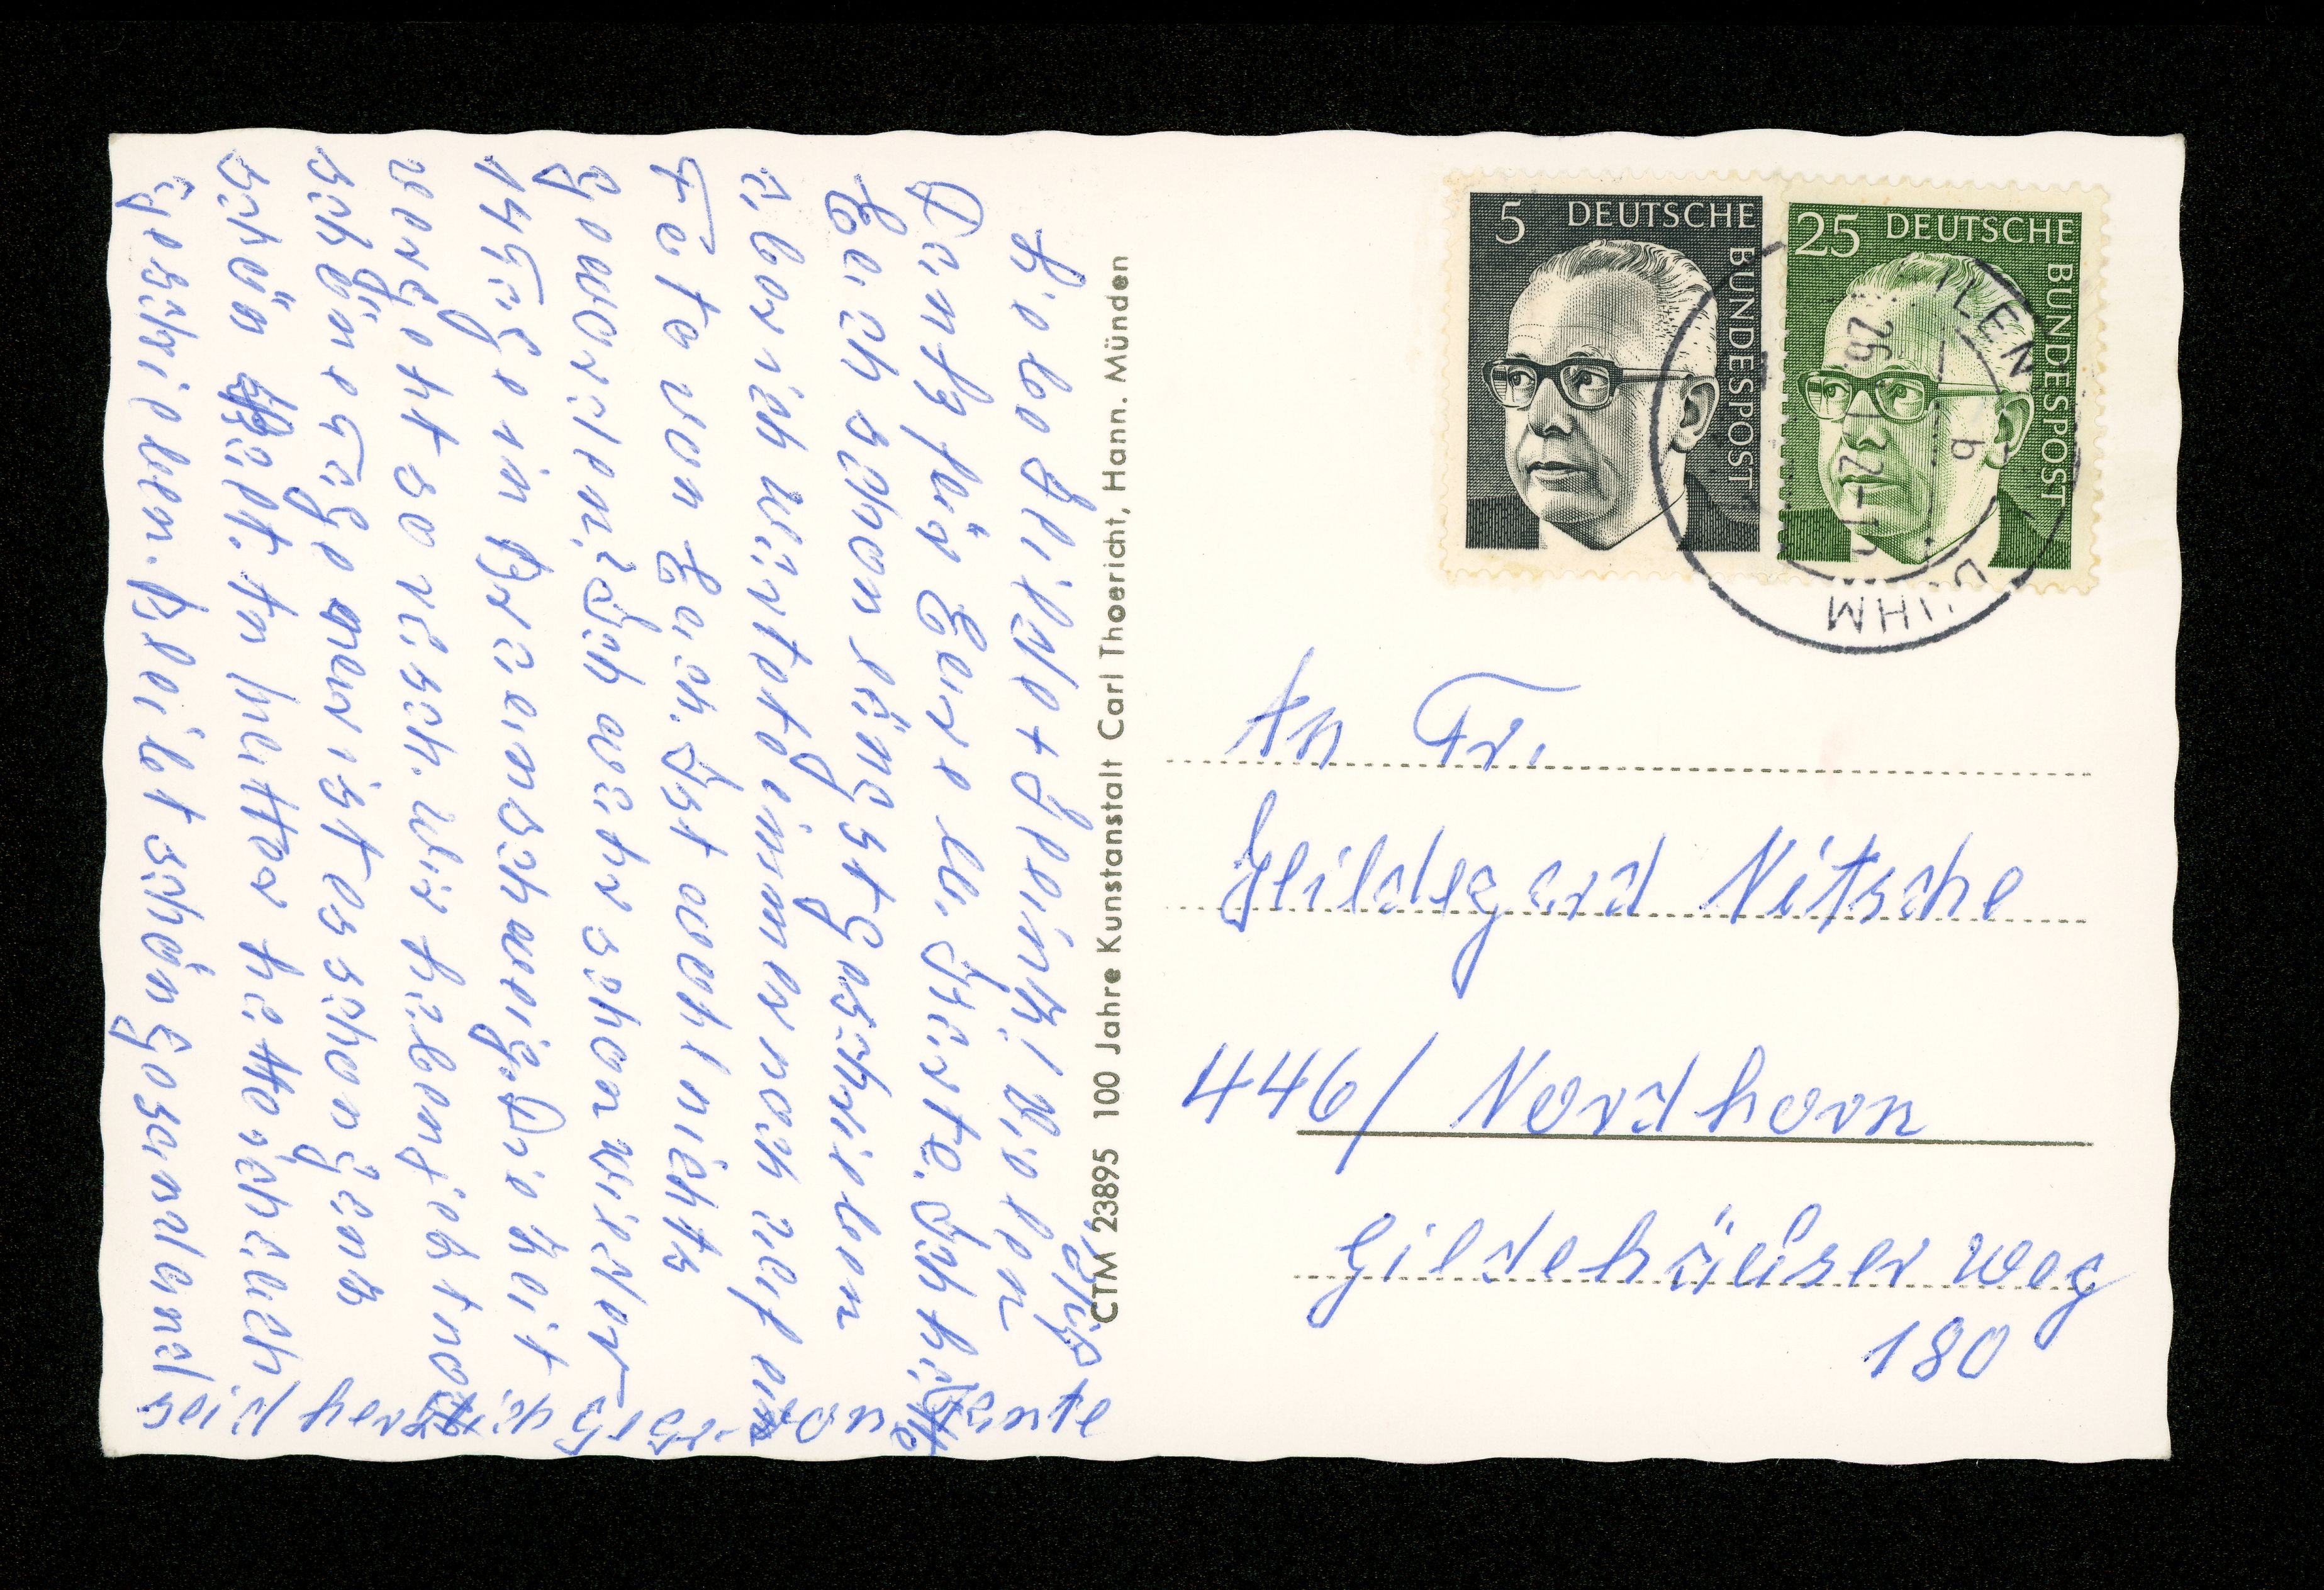 Liebe Hilde + Heini! Vielen
Dank für Eure U. Karte. Ich hätte
Euch schon längst geschrieben
aber ich wartete immer noch auf ein
Foto von Euch. Ist wohl nichts
geworden. Ich war schon wieder
14 Tage in Braunschweig. Die Zeit
vergeht so rasch. Wir haben jetzt noch
schöne Tage nur ist es schon ganz
schön kalt. In hätte ich Euch
geschrieben. Bleibt schön gesund und
seid herzlich gegrüßt von Tante
CTM 23895 100 Jahre Kunstanstalt Carl Thoericht, Hann. Münden
5 DEUTSCHE BUNDESPOST
25 DEUTSCHE BUNDESPOST
26
b
An Fr.
Hildegard Nitsche
446/ Nordhorn
Gildehäuser Weg
180